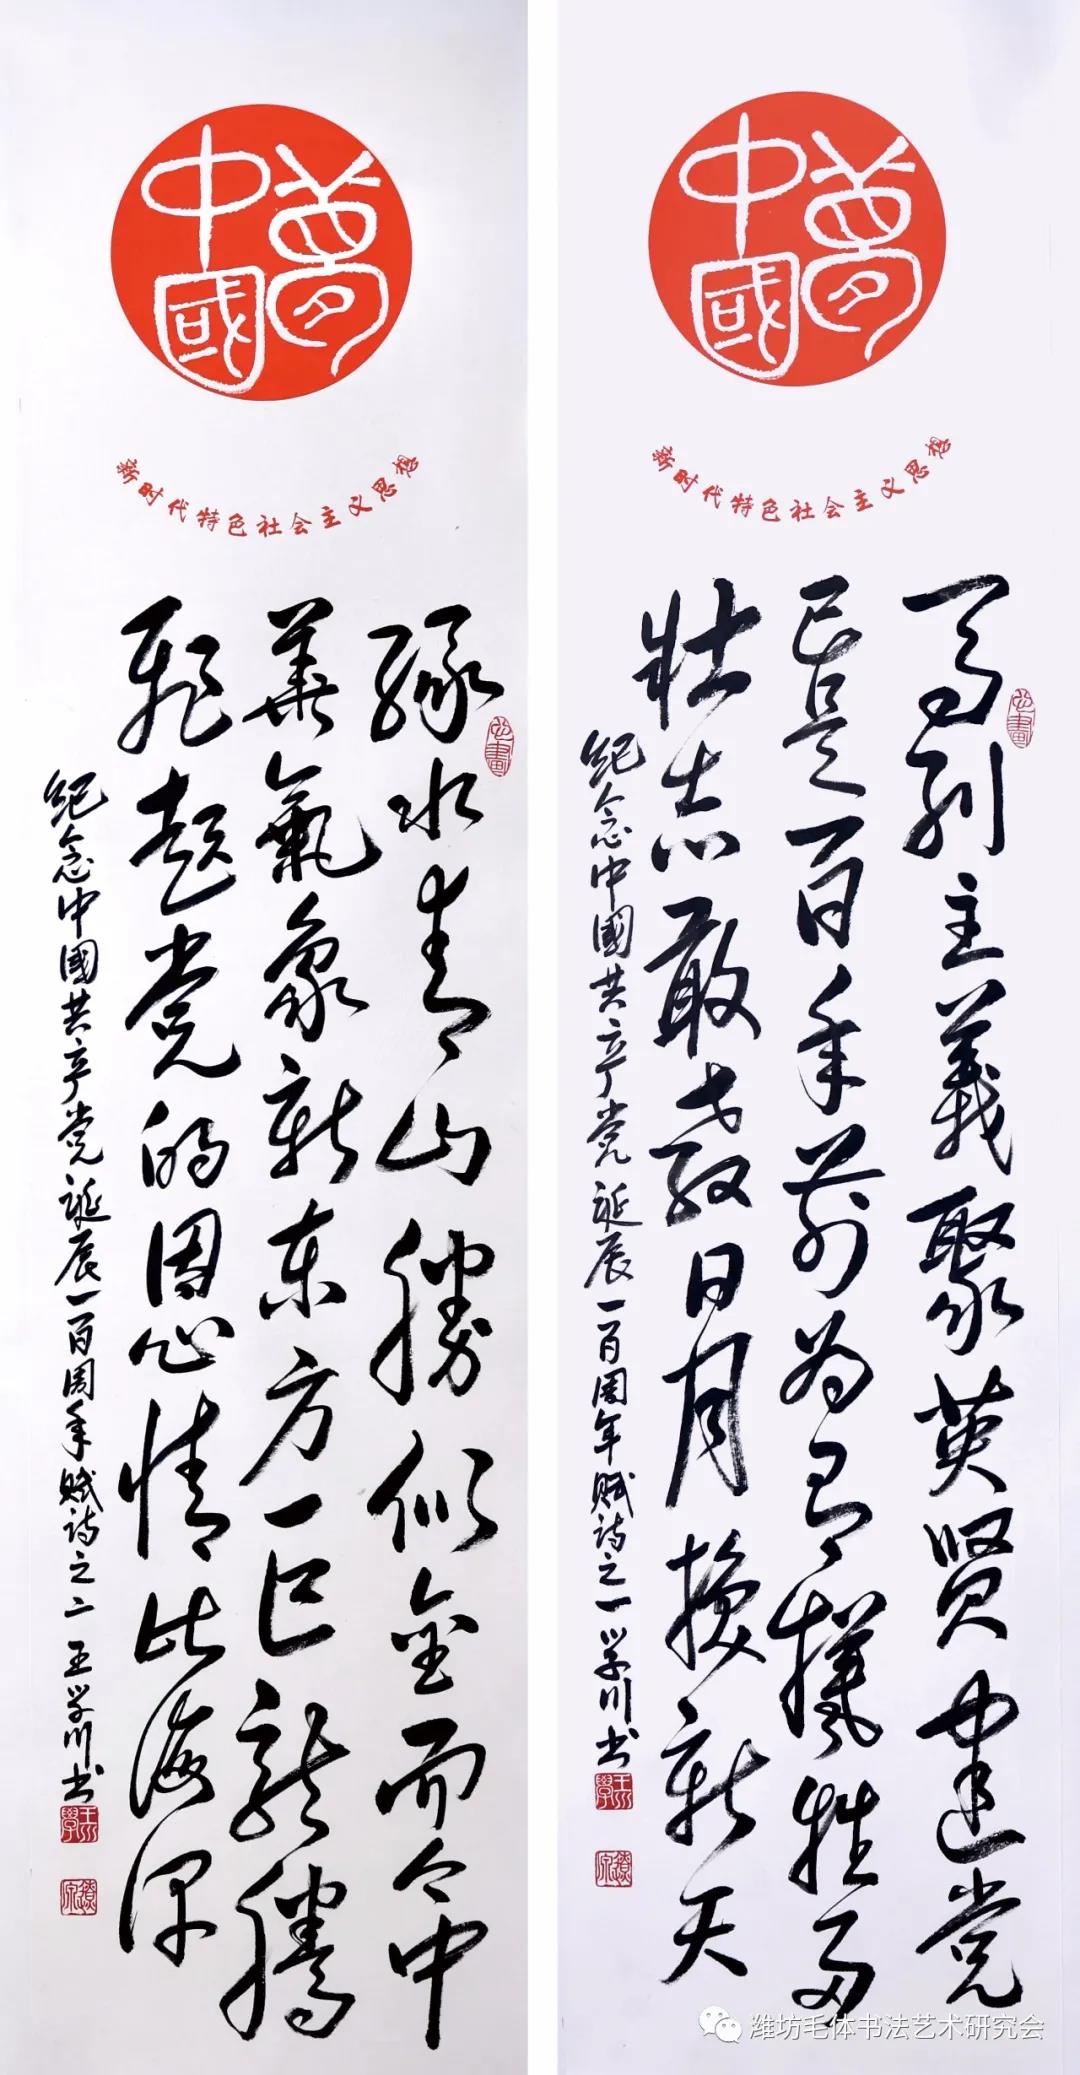 中國夢
新时代特色社会主义思想
马列主義聚英贤建党
已是百年前为有犧牲多
壮志敢教日月换新天
纪念中國共产党诞辰一百周年赋诗之一 学川书
中國夢
新时代特色社会主义思想
緑水青山勝似金而今中
華氣象新东方一巨龍腾
飛起党的恩情比海深
纪念中國共产党诞辰一百周年赋诗之二 王学川书
潍坊毛体书法艺术研究会